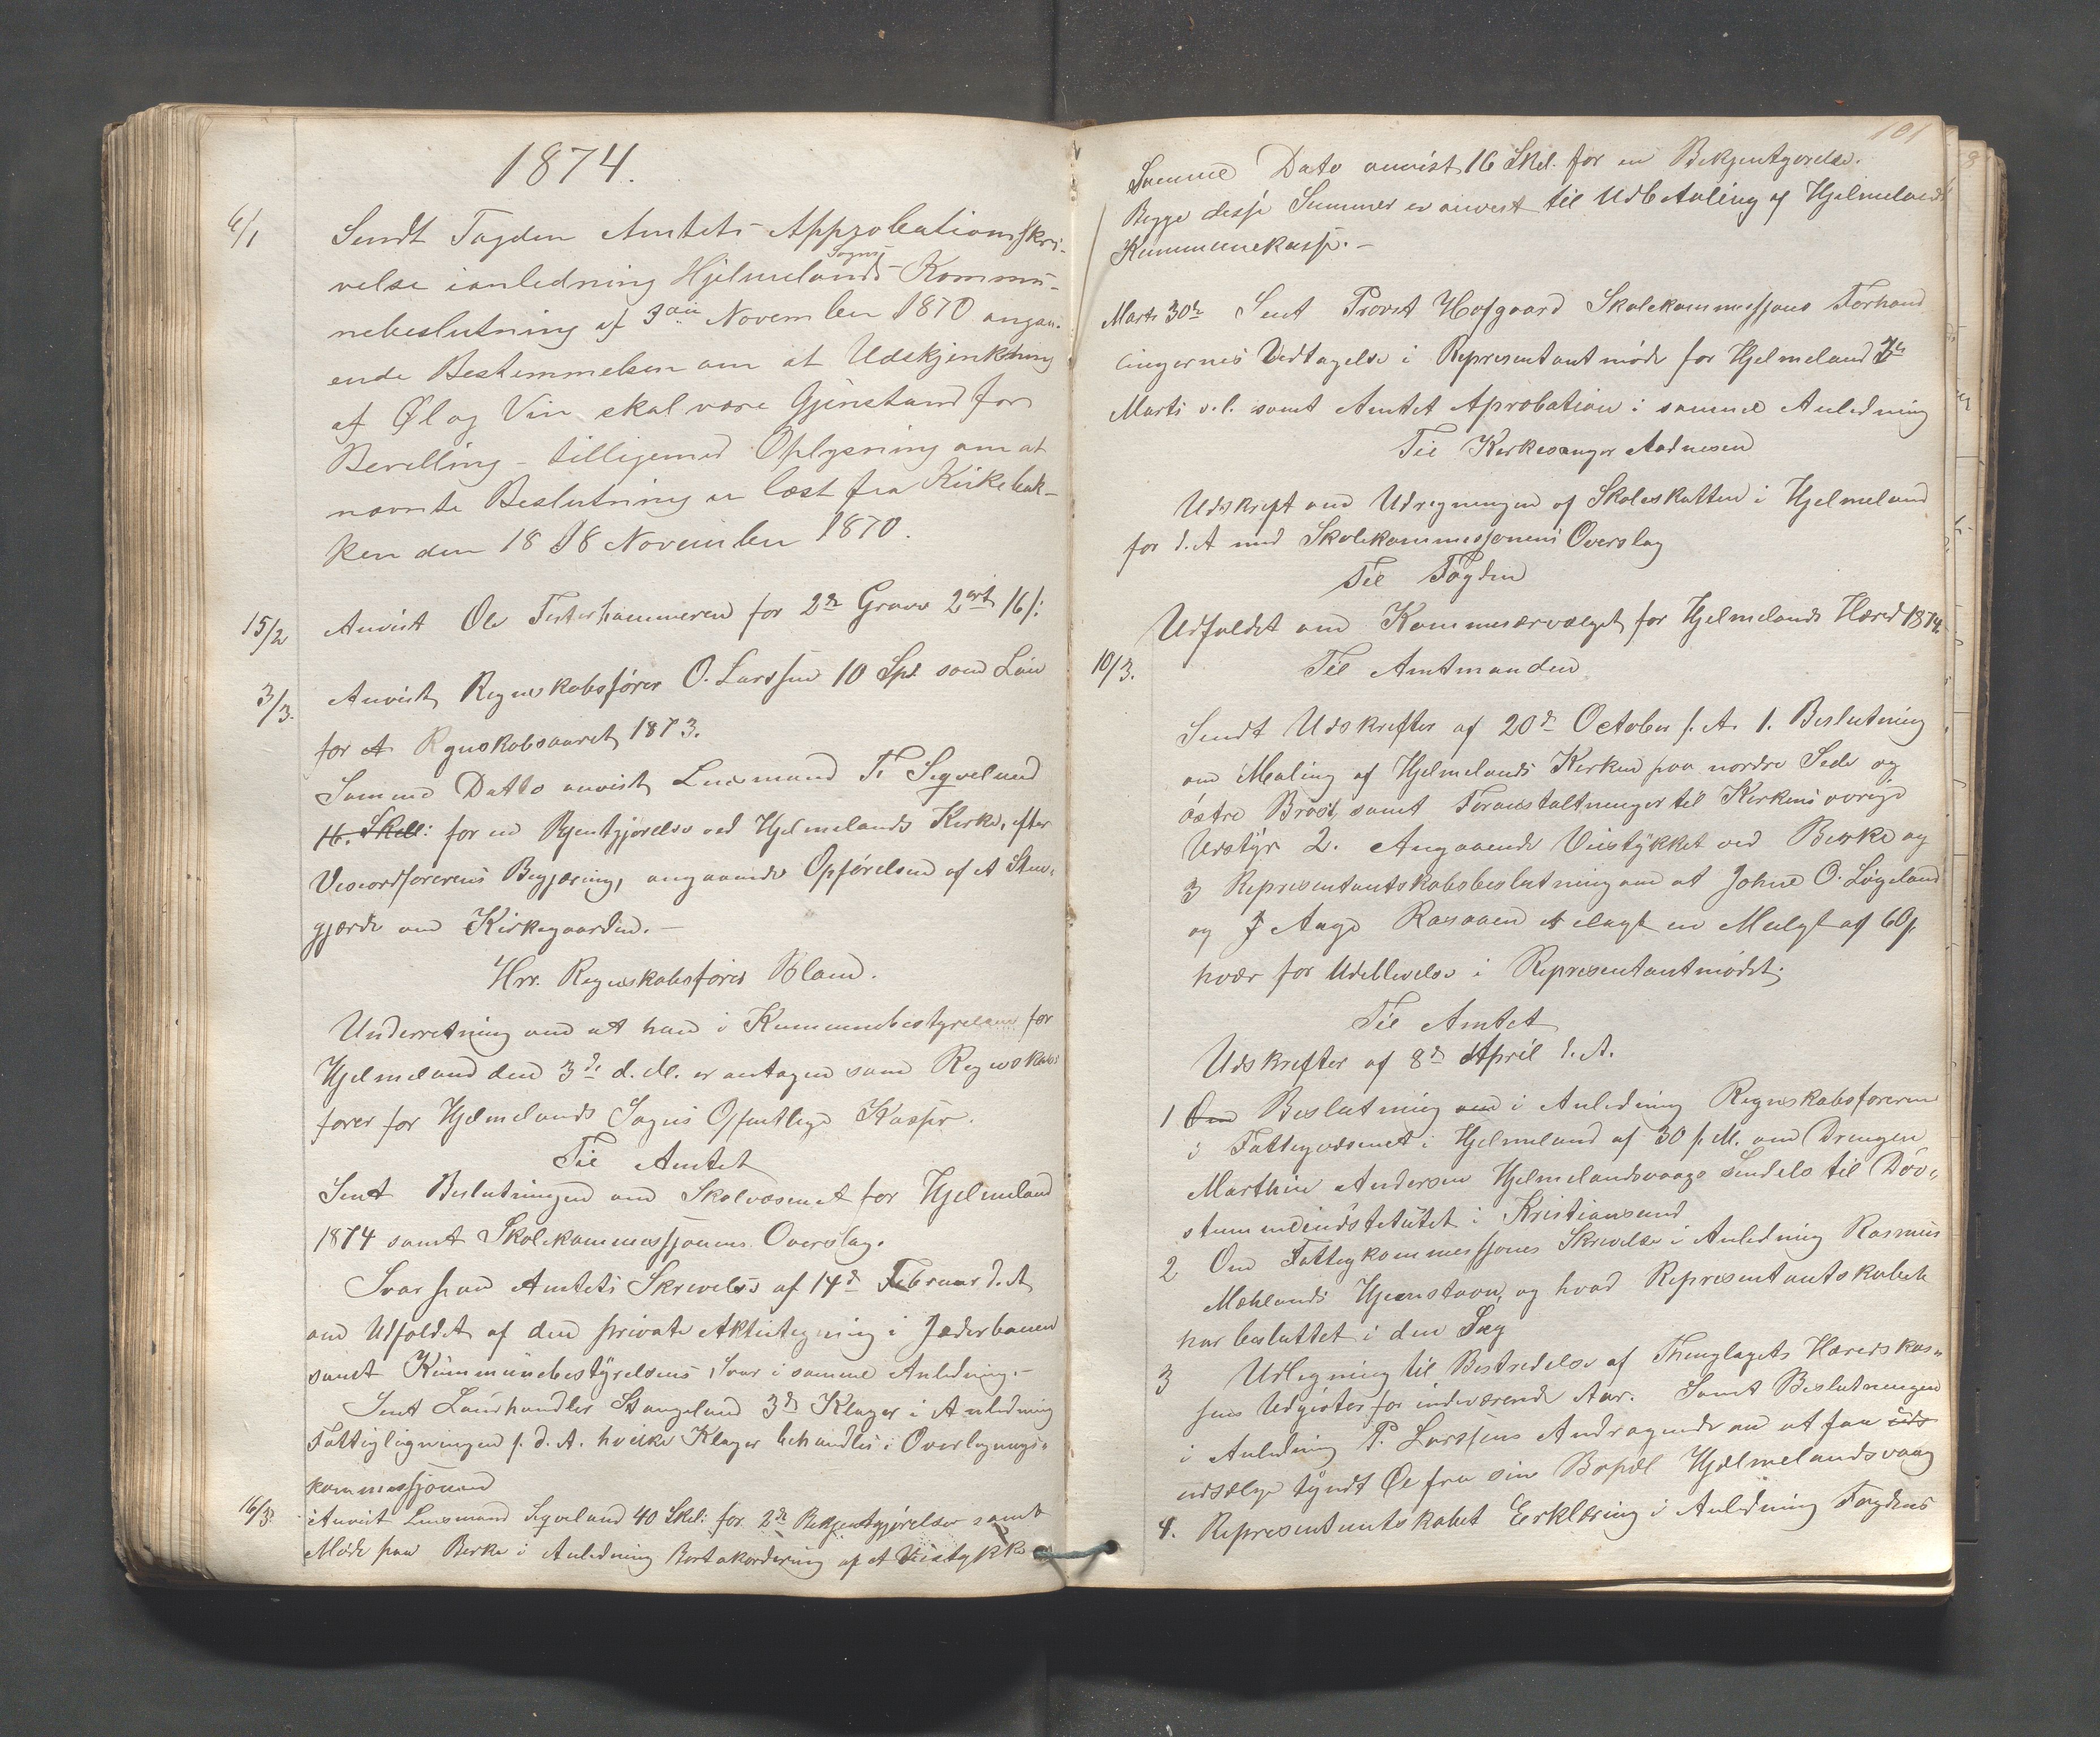 1874.
6/1 Sendt Fogden Amtets Approbationsskri-
velse ianledning Hjelmelands Sogns Kommu-
nebeslutning af 3die November 1870 angaa-
ende Bestemmelsen om at Udskjenkning
af Øl og Vin skal være Gjenstand for
Bevelling - tilligemed Oplysning om at
nævnte Beslutning er læst fra Kirkebak-
ken den 18 18 November 1870.
15/2 Anvist Ole Festerhammeren for 2de Grave 2 ort 16 s:
3/3. Anvist Regnskabsfører O. Larssen 10 Spd som Løn
for et Regnskabsaaret 1873.
Samme Datto anvist Lensmand T. Segveland
16. Skell: for en Kjentgjørelse ved Hjelmelands Kirke, efter
Viceordførerens Begjæring, angaaende Opførelsen af et Sten-
gjærde om Kirkegaarden. -
Hrr. Regnskabsfører Bland.
Underretning om at han i Kummunebestyrelsen for
Hjelmeland den 3de d. M. er antagen som Regnskabs
fører for Hjelmelands Sogns Offentlige Kasser.
Til Amtet
Sent Beslutningen om Skolvæsenet for Hjelmeland
1874 samt Skolekommissjonens Overslag.
Svar paa Amtets Skrivelse af 14de Februar d. A
om Udfaldet af den private Aktietegning i Jæderbanen
samt Kummunebestyrelsens Svar i samme Anledning. -
Sent Landhandler Stangeland 3de Klager i Anledning
Fattigligningen f. d. A. hvilke Klager behandles i Overlignings-
kommissjonen
16/3. Anvist Lensmand Segveland 40 Skel: for 2de Bekjentgjørelser samt
Møde paa Berke i Anledning Bortakordering af et Veistykke
101
Samme Dato anvist 16 Skel. for en Bekjentgørelse.
Begge disse Summer er anvist til Udbetaling af Hjelmelands
Kummunekasse. -
Marts 30te Sent Provst Hofgaard Skolekommissjons Forhand
lingernes Vedtagelse i Representantmøde for Hjelmeland 3de
Marts d. l. samt Amtet Aprobation i samme Anledning
Til Kirkesanger Aadnesen
Udskrift om Udregningen af Skoleskatten i Hjelmeland
for d. A med Skolekommissjonens Overslag
Til Fogden
Udfaldet om Kommisærvalget for Hjelmelands Hæred 1874.
10/3. Til Amtmanden
Sendt Udskrefter af 20de October f. A. 1. Beslutning
om Maling af Hjelmelands Kirken paa nordre Side og
østre Brøst, samt Foranstaltninger til Kirkens øvrige
Udstyr 2. Angaaende Veistykket ved Berke og
3 Representantskabsbeslutning om at Johne O. Løgeland
og J Aage Raraaen et elagt en Mulgt af 60 s.
hvær for Udeblivelse i Representantmødet.
Til Amtet
Udskrefter af 8de April d. A.
1 Om Beslutning om i Anledning Regnskabsføreren
i Fattigvæsenet i Hjelmeland af 30 f. M. om Drengen
Marthin Andersen Hjelmelandsvaage Sendels til Døv-
stummeinstetutet i Kristiansund
2 Om Fattigkommissjones Skrivelse i Anledning Rasmus
Mæhlands Hjemstavn, og hvad Representantskabet
har besluttet i den Sag
3 Udlegning til Bestridelse af Thinglagets Hæredskas-
sens Udgivter for indeværende Aar. Samt Beslutningen
i Anledning P. Larssens Andragende om at faa uds
udsælge tyndt Øl fra sin Bopæl Hjælmelandsvaag
4. Representantskabet Erklæring i Anledning Fogdens